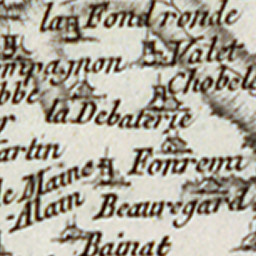 la Fond ronde
Valet
mpagnon
Chobele
bbé
la Debaterie
r
artin
Fonremi
le Maine
-Alain
Beauregard
Bainat